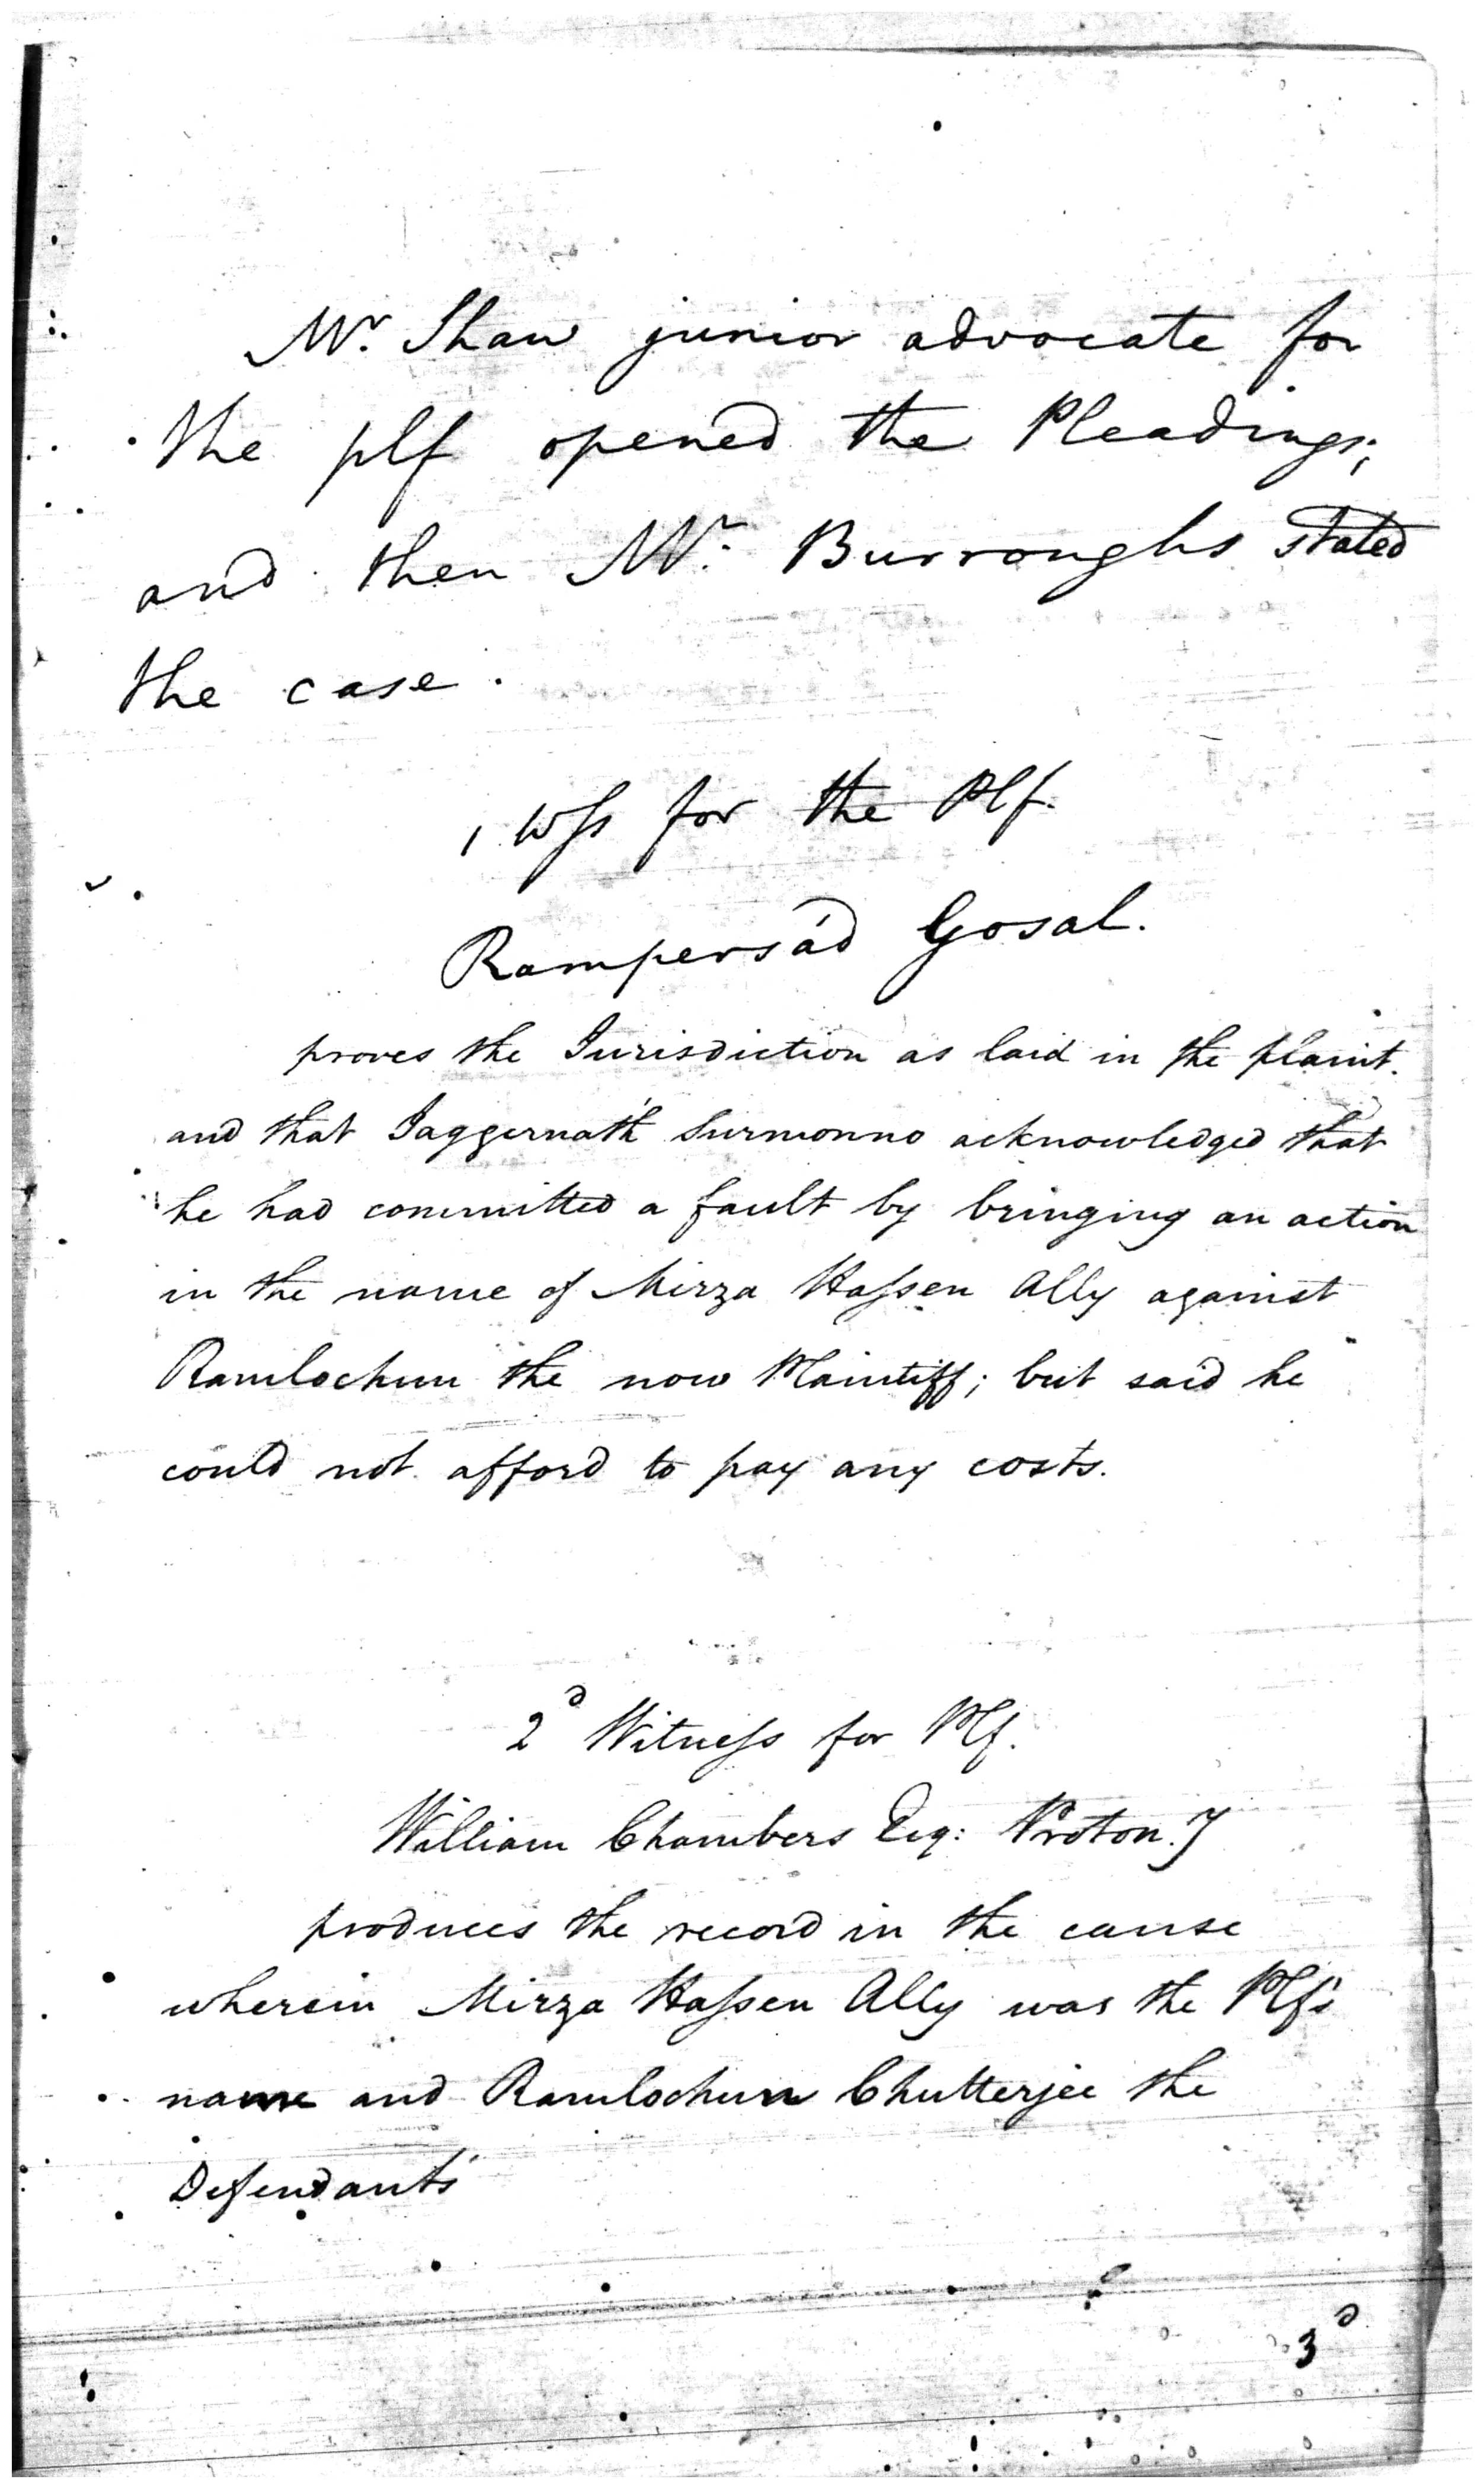 Mr. Shaw junior advocate for
the plf opened the Pleadings;
and then Mr. Burroughs stated
the case.
1 Wſs for the Plf.
Rampersád Gosal.
proves the Jurisdiction as laid in the plaint.
and that Jaggernath Surmonno acknowledged that
he had committed a fault by bringing an action
in the name of Mirza Haſsen Ally against
Ramlochun the now Plaintiff; but said he
could not afford to pay any costs.
2d Witneſs for Plf.
William Chambers Esq: Proton.y
produces the record in the cause
wherein Mirza Haſsen Ally was the Plf's
name and Ramlochun Chutterjee the
Defendant's
3d